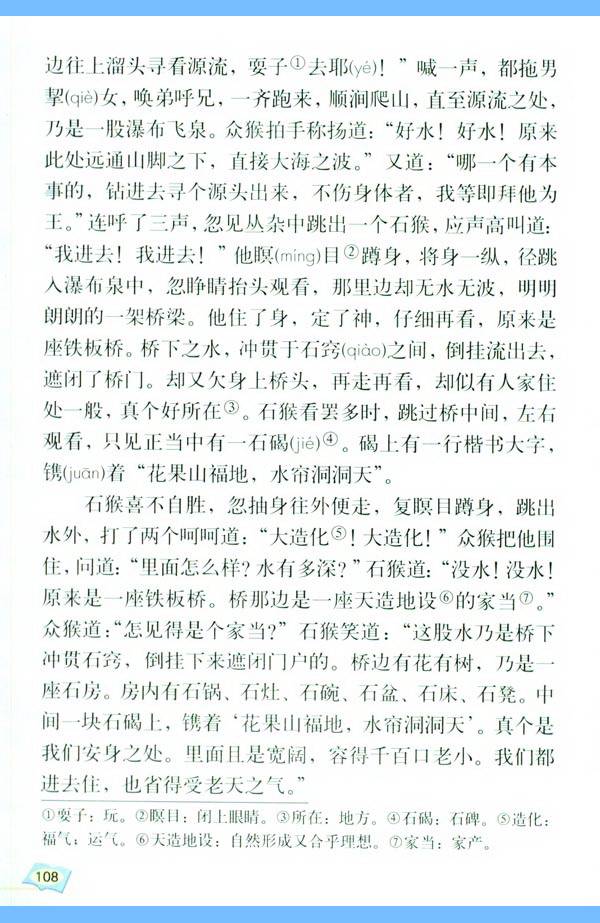 边往上溜头寻看源流，耍子①去耶(yé)！”喊一声，都拖男
挈(qiè)女，唤弟呼兄，一齐跑来，顺涧爬山，直至源流之处，
乃是一股瀑布飞泉。众猴拍手称扬道：“好水！好水！原来
此处远通山脚之下，直接大海之波。”又道：“哪一个有本
事的，钻进去寻个源头出来，不伤身体者，我等即拜他为
王。”连呼了三声，忽见丛杂中跳出一个石猴，应声高叫道：
“我进去！我进去！”他瞑(míng)目②蹲身，将身一纵，径跳
入瀑布泉中，忽睁睛抬头观看，那里边却无水无波，明明
朗朗的一架桥梁。他住了身，定了神，仔细再看，原来是
座铁板桥。桥下之水，冲贯于石窍(qiào)之间，倒挂流出去，
遮闭了桥门。却又欠身上桥头，再走再看，却似有人家住
处一般，真个好所在③。石猴看罢多时，跳过桥中间，左右
观看，只见正当中有一石碣(jié)④。碣上有一行楷书大字，
镌(juān)着“花果山福地，水帘洞洞天”。
石猴喜不自胜，忽抽身往外便走，复瞑目蹲身，跳出
水外，打了两个呵呵道：“大造化⑤！大造化！”众猴把他围
住，问道：“里面怎么样？水有多深？”石猴道：“没水！没水！
原来是一座铁板桥。桥那边是一座天造地设⑥的家当⑦。”
众猴道：“怎见得是个家当？”石猴笑道：“这股水乃是桥下
冲贯石窍，倒挂下来遮闭门户的。桥边有花有树，乃是一
座石房。房内有石锅、石灶、石碗、石盆、石床、石凳。中
间一块石碣上，镌着‘花果山福地，水帘洞洞天’。真个是
我们安身之处。里面且是宽阔，容得千百口老小。我们都
进去住，也省得受老天之气。”
①耍子：玩。②瞑目：闭上眼睛。③所在：地方。④石碣：石碑。⑤造化：
福气；运气。⑥天造地设：自然形成又合乎理想。⑦家当：家产。
108